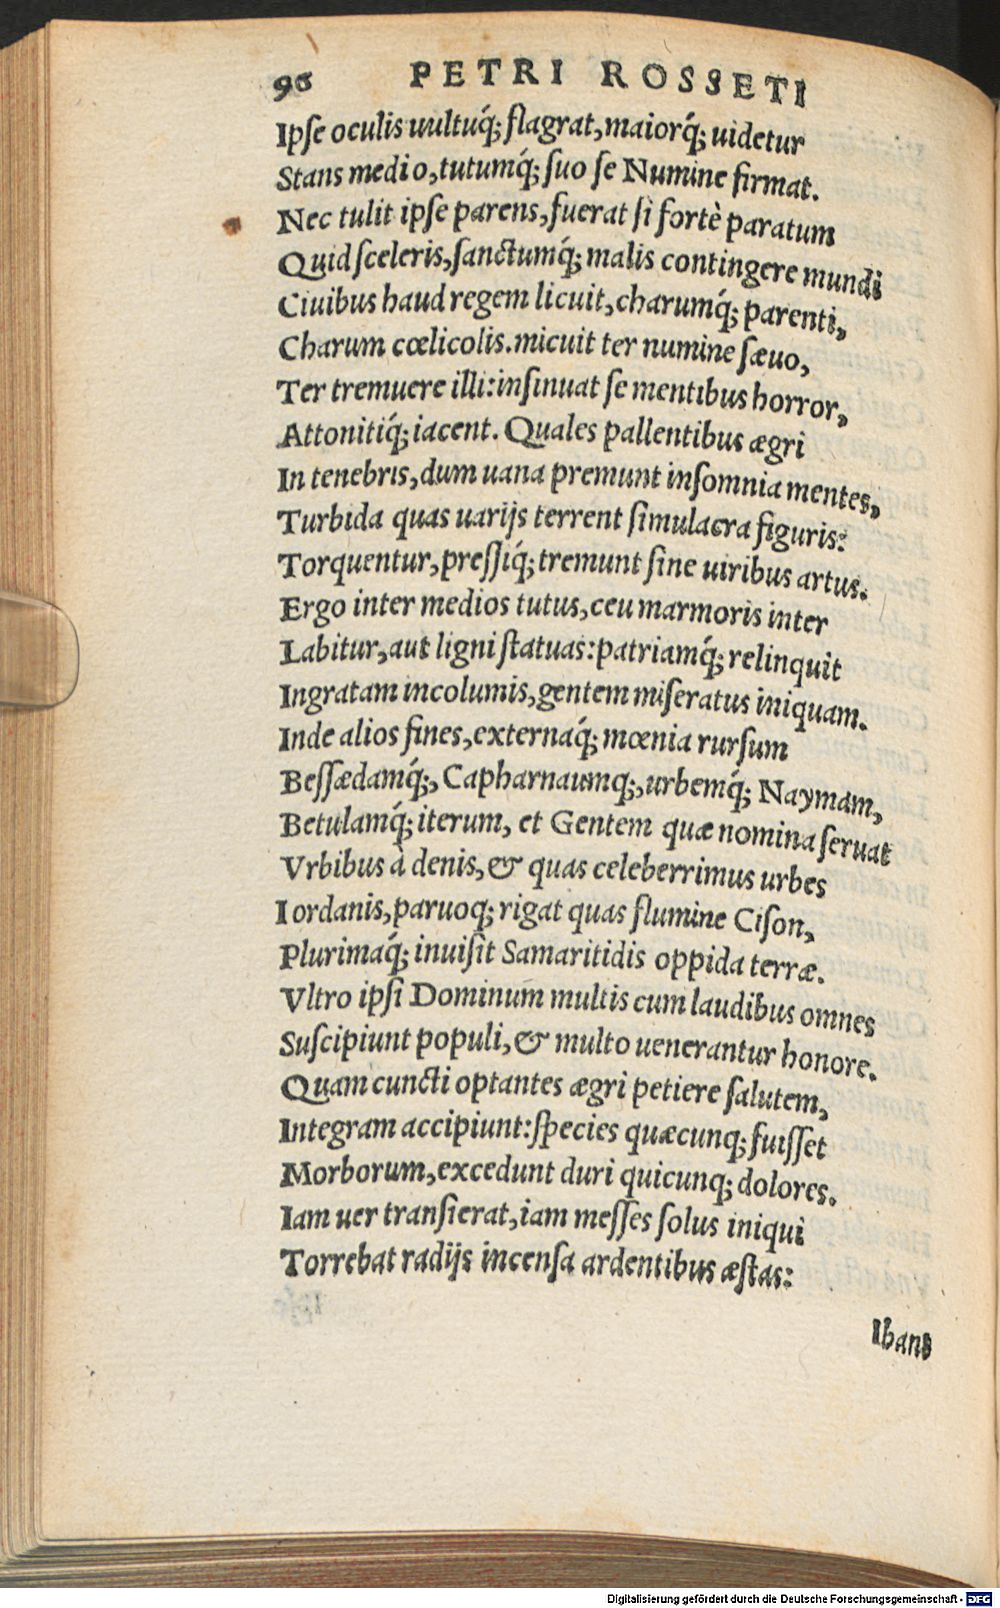 96 PETRI ROSSETI
Ipſe oculis uultuq́; flagrat, maiorq́; uidetur
Stans medio, tutumq́; ſuo ſe Numine firmat.
Nec tulit ipſe parens, fuerat ſi fortè paratum
Quid ſceleris, ſanctumq́; malis contingere mundi
Ciuibus haud regem licuit, charumq́; parenti,
Charum cœlicolis. micuit ter numine ſæuo,
Ter tremuere illi: inſinuat ſe mentibus horror,
Attonitiq́; iacent. Quales pallentibus ægri
In tenebris, dum uana premunt inſomnia mentes,
Turbida quas uarijs terrent ſimulacra figuris:
Torquentur, preſſiq́; tremunt ſine uiribus artus.
Ergo inter medios tutus, ceu marmoris inter
Labitur, aut ligni ſtatuas: patriamq́; relinquit
Ingratam incolumis, gentem miſeratus iniquam.
Inde alios fines, externaq́; mœnia rurſum
Beſſædamq́;, Capharnaumq;, urbemq́; Naymam,
Betulamq́; iterum, et Gentem quæ nomina ſeruat
Vrbibus à denis, & quas celeberrimus urbes
Iordanis, paruoq; rigat quas flumine Ciſon,
Plurimaq́; inuiſit Samaritidis oppida terræ.
Vltro ipſi Dominum multis cum laudibus omnes
Suſcipiunt populi, & multo uenerantur honore.
Quam cuncti optantes ægri petiere ſalutem,
Integram accipiunt: ſpecies quæcunq; fuiſſet
Morborum, excedunt duri quicunq; dolores.
Iam uer tranſierat, iam meſſes ſolus iniqui
Torrebat radijs incenſa ardentibus æſtas:
Ibant
Digitalisierung gefördert durch die Deutsche Forschungsgemeinschaft - DFG